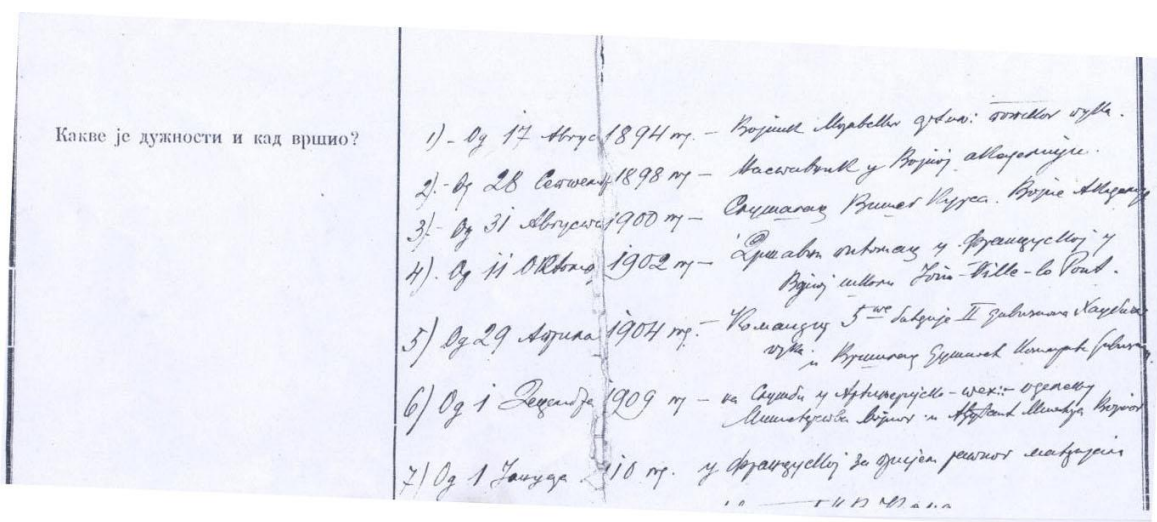 Какве је дужности и кад вршио?
1) - Од 17 Авгус 1894 г. - Војник
2) - Од 28 Септем 1898 г - Наставник у Војној академији.
3) - Од 31 Августа 1900 г - Слушалац Вишег Курса. Војне Академије
4). Од 11 Октомб 1902 г - Државни питомац у Француској у
Војној школи Join-Ville-le Pont.
5) Од 29 Априла 1904 г. - Командир 5 те батерије II дивизиона
и
6) Од 1 Децембра 1909 г - на Служби у Артиљеријско - техн: оделењу
Министарства војног и Ађутант Војног
7) Од 1 Јануара 10 г. у Француској за пријем ратног материјала